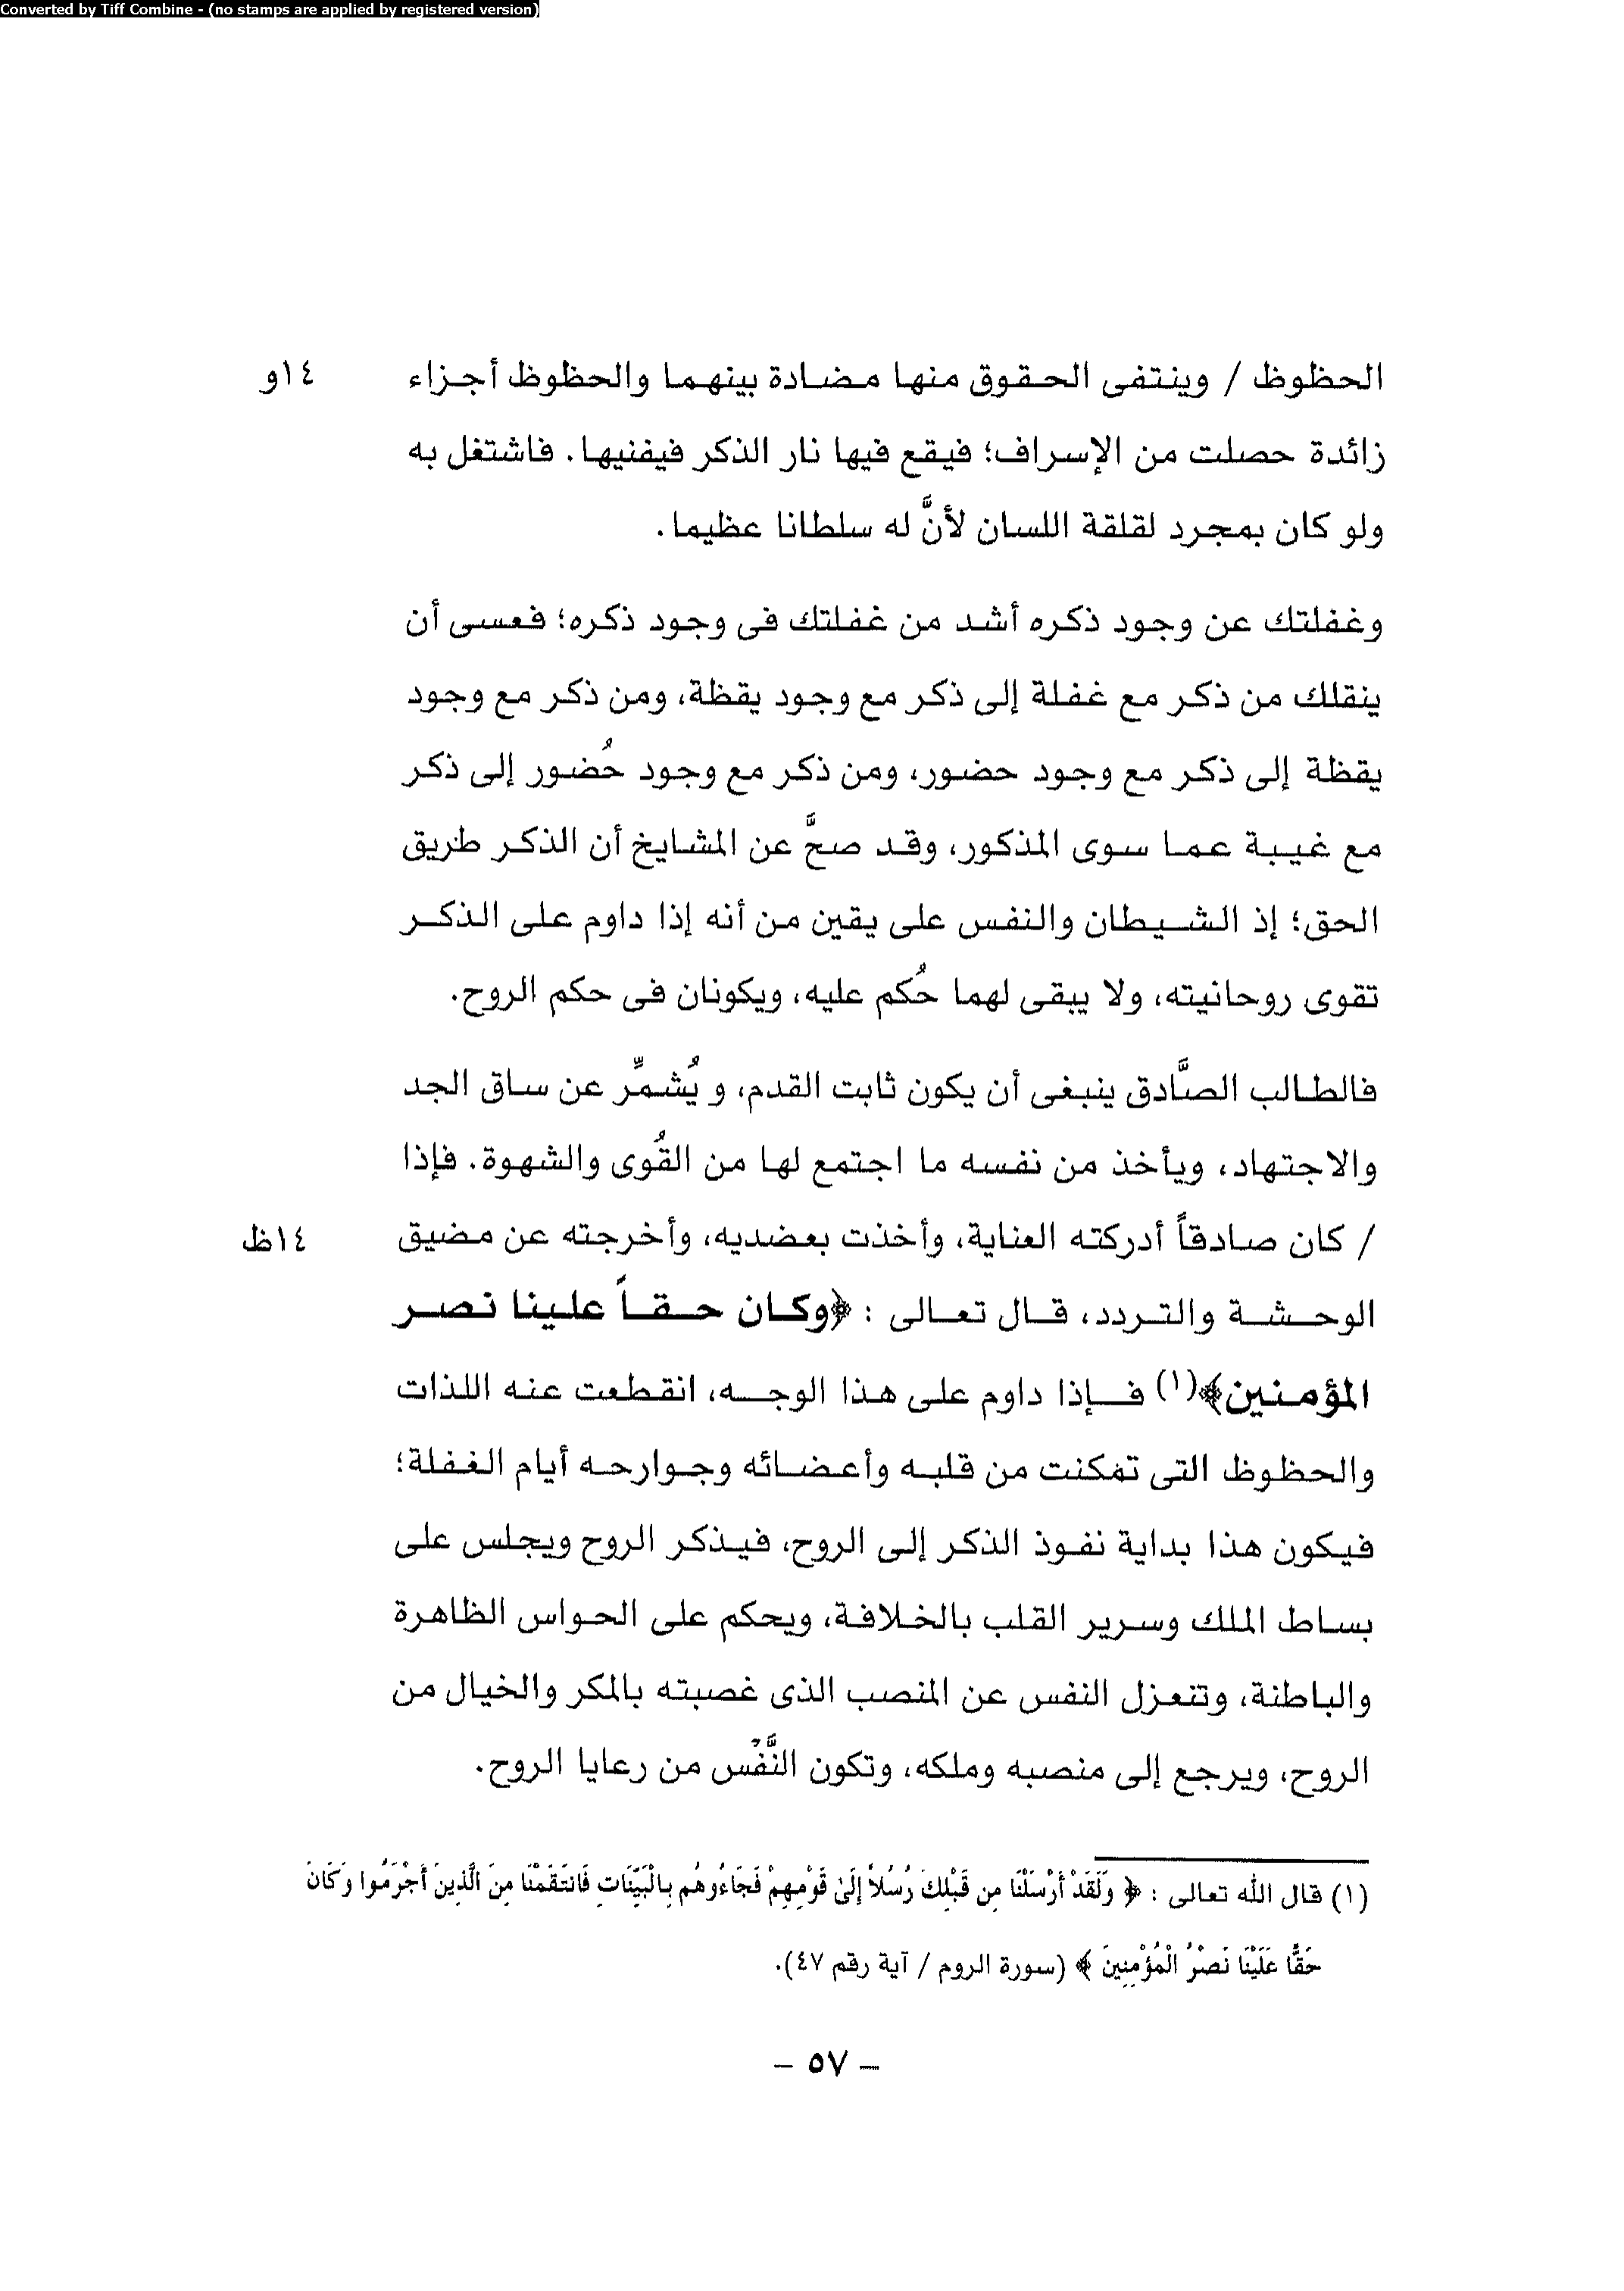 Converted by Tiff Combine - (no stamps are applied by registered version)
الحظوظ / وينتفى الحقوق منها مضادة بينهما والحظوظ أجزاء ١٤و
زائدة حصلت من الإسراف؛ فيقع فيها نار الذكر فيفنيها. فاشتغل به
ولو كان بمجرد لقلقة اللسان لأنَّ له سلطانا عظيما.
وغفلتك عن وجود ذكره أشد من غفلتك فى وجود ذكره؛ فعسى أن
ينقلك من ذكر مع غفلة إلى ذكر مع وجود يقظة، ومن ذكر مع وجود
يقظة إلى ذكر مع وجود حضور، ومن ذكر مع وجود حُضور إلى ذكر
مع غيبة عما سوى المذكور، وقد صحَّ عن المشايخ أن الذكر طريق
الحق؛ إذ الشيطان والنفس على يقين من أنه إذا داوم على الذكر
تقوى روحانيته، ولا يبقى لهما حُكم عليه، ويكونان فى حكم الروح.
فالطالب الصَّادق ينبغى أن يكون ثابت القدم، و يُشمِّر عن ساق الجد
والاجتهاد، ويأخذ من نفسه ما اجتمع لها من القُوى والشهوة. فإذا
/ كان صادقاً أدركته العناية، وأخذت بعضديه، وأخرجته عن مضيق ١٤ظ
الوحشة والتردد، قال تعالى : ﴿وكان حقاً علينا نصر
المؤمنين﴾(١) فإذا داوم على هذا الوجه، انقطعت عنه اللذات
والحظوظ التى تمكنت من قلبه وأعضائه وجوارحه أيام الغفلة؛
فيكون هذا بداية نفوذ الذكر إلى الروح، فيذكر الروح ويجلس على
بساط الملك وسرير القلب بالخلافة، ويحكم على الحواس الظاهرة
والباطنة، وتنعزل النفس عن المنصب الذى غصبته بالمكر والخيال من
الروح، ويرجع إلى منصبه وملكه، وتكون النَّفْس من رعايا الروح.
(١) قال الله تعالى : ﴿ وَلَقَدْ أَرْسَلْنَا مِن قَبْلِكَ رُسُلاً إِلَىٰ قَوْمِهِمْ فَجَاءُوهُم بِالْبَيِّنَاتِ فَانتَقَمْنَا مِنَ الَّذِينَ أَجْرَمُوا وَكَانَ
حَقًّا عَلَيْنَا نَصْرُ الْمُؤْمِنِينَ ﴾ (سورة الروم / آية رقم ٤٧).
– ٥٧ –